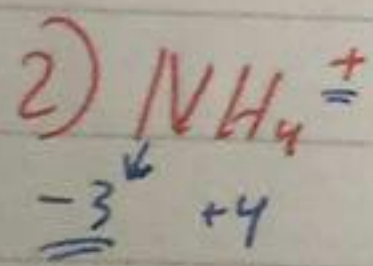 2) NH₄⁺
-3 +4